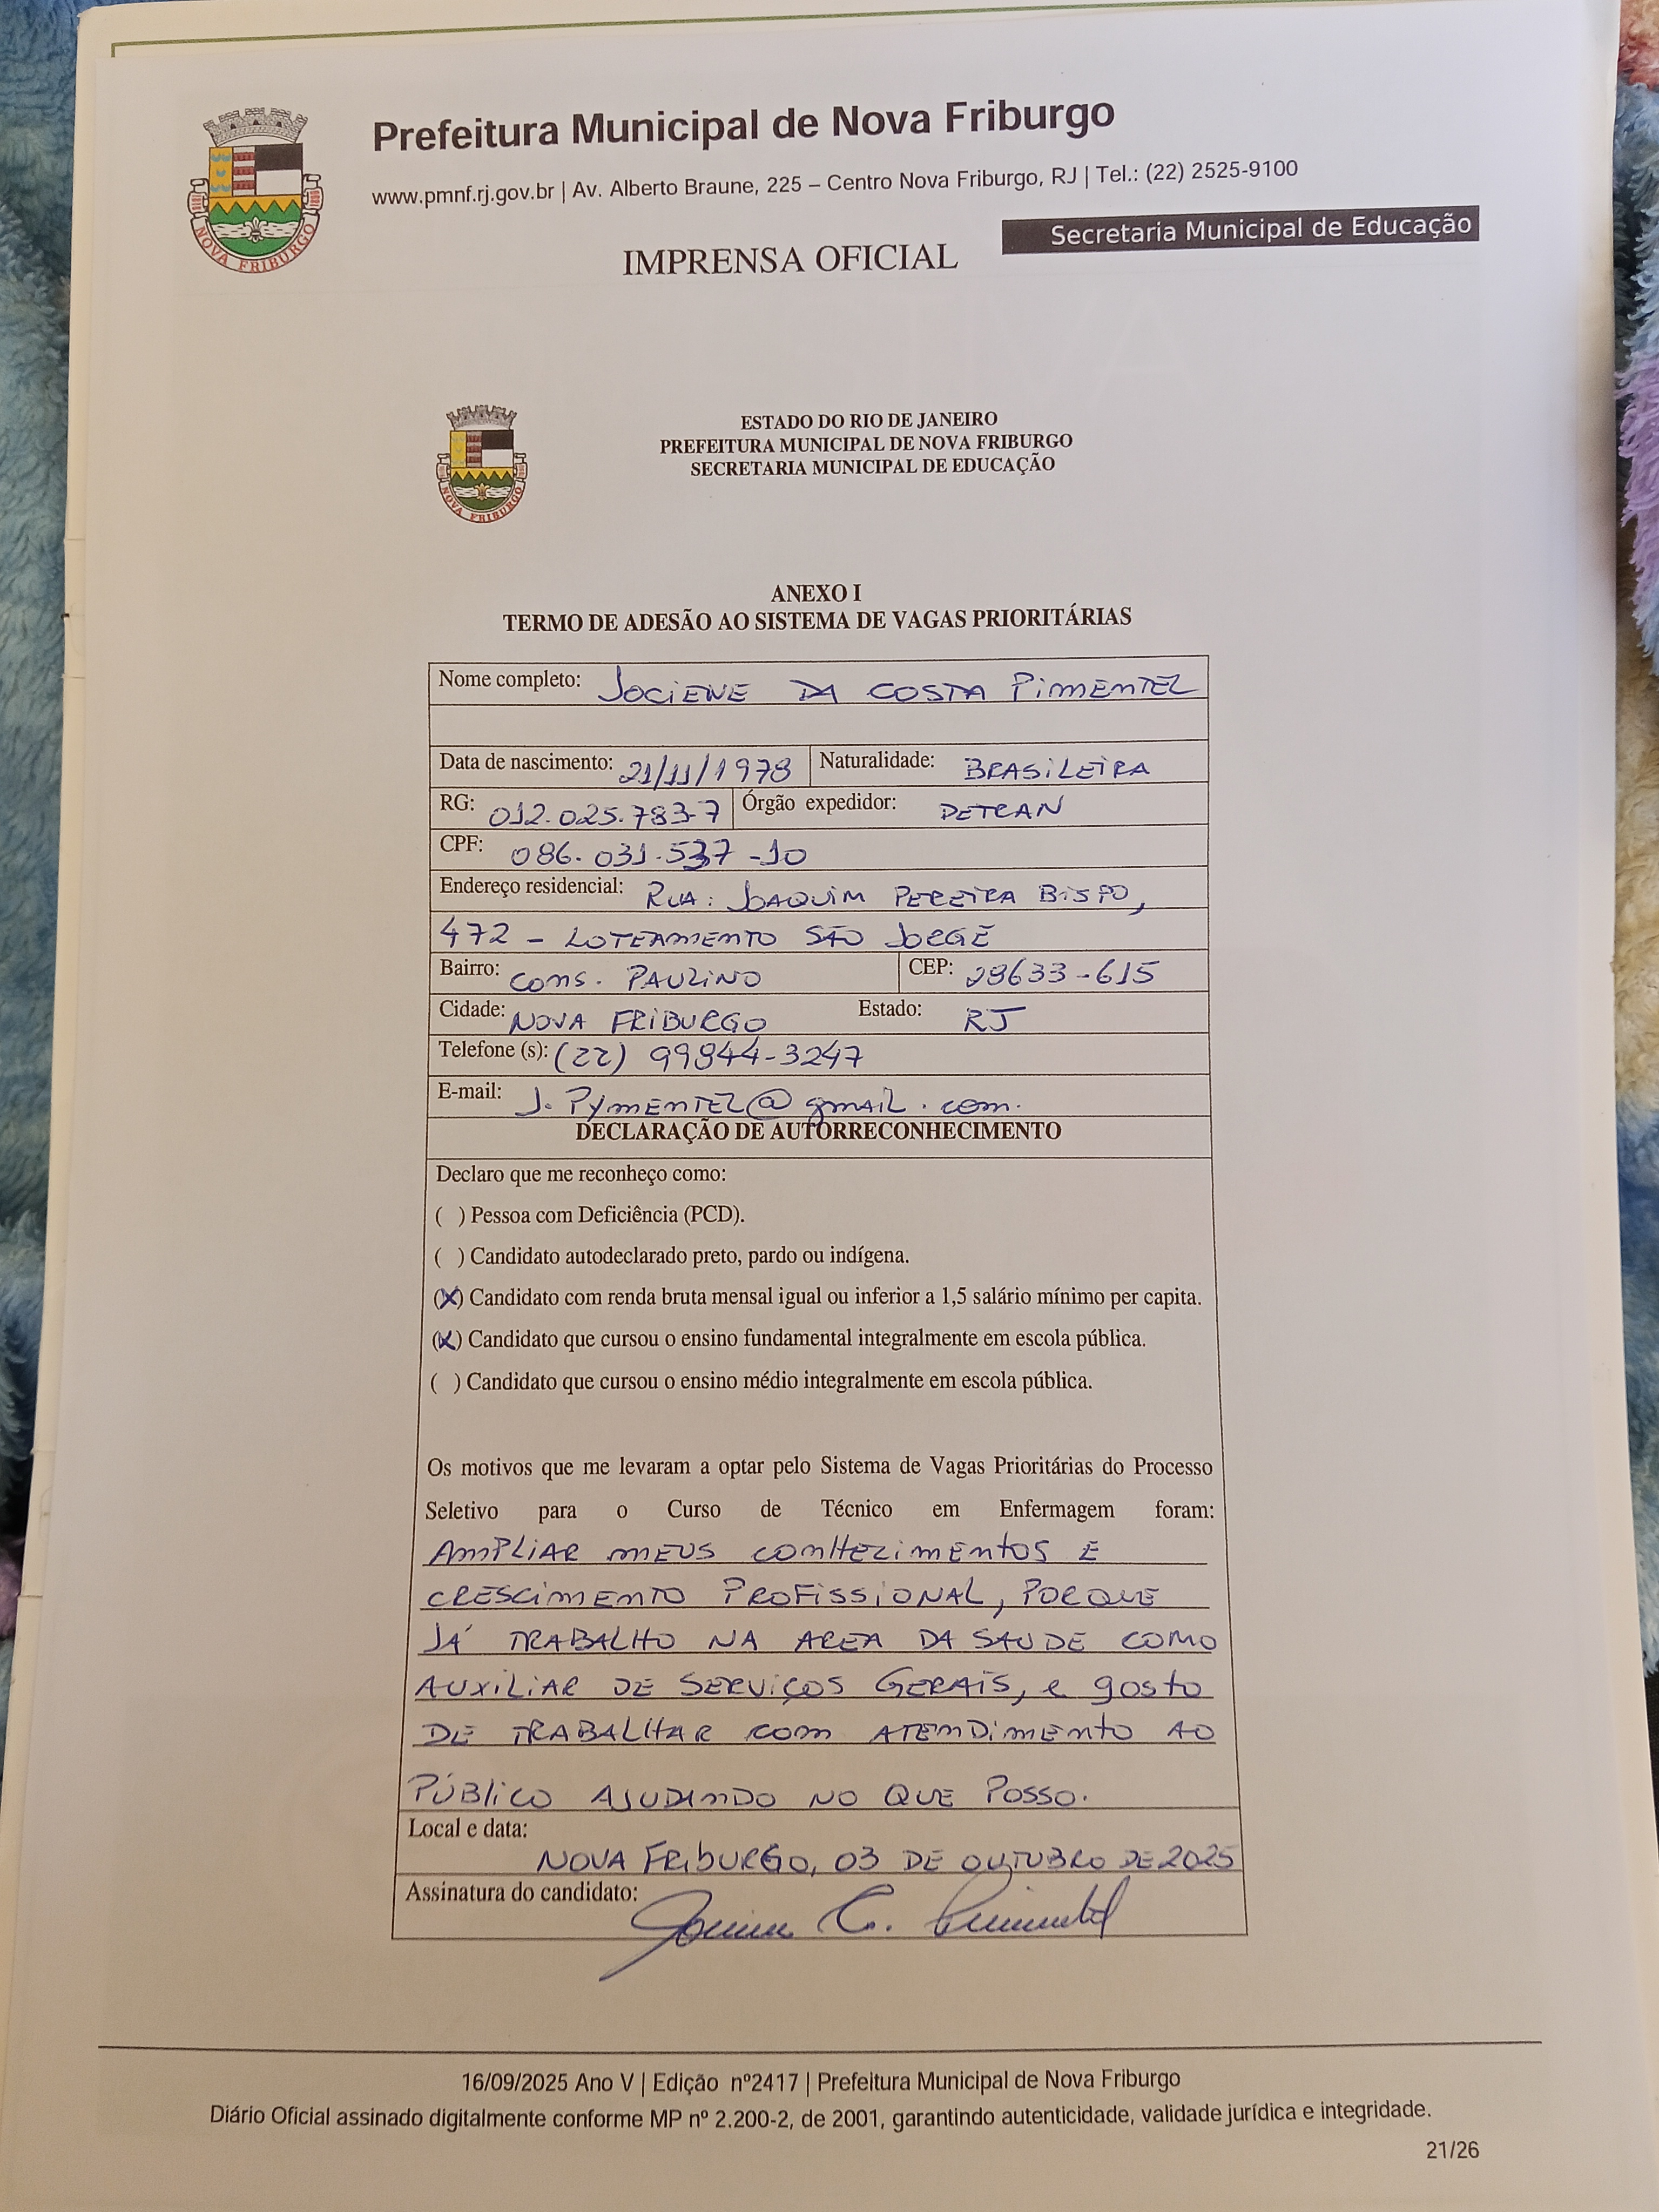 Prefeitura Municipal de Nova Friburgo
www.pmnf.rj.gov.br | Av. Alberto Braune, 225 – Centro Nova Friburgo, RJ | Tel.: (22) 2525-9100
Secretaria Municipal de Educação
IMPRENSA OFICIAL
NOVA FRIBURGO
ESTADO DO RIO DE JANEIRO
PREFEITURA MUNICIPAL DE NOVA FRIBURGO
SECRETARIA MUNICIPAL DE EDUCAÇÃO
NOVA FRIBURGO
ANEXO I
TERMO DE ADESÃO AO SISTEMA DE VAGAS PRIORITÁRIAS
Nome completo: JOCIENE DA COSTA PIMENTEL
Data de nascimento: 21/11/1978 Naturalidade: BRASILEIRA
RG: 012.025.783-7 Órgão expedidor: DETRAN
CPF: 086.031.537-10
Endereço residencial: RUA: JOAQUIM PEREIRA BISPO,
472 - LOTEAMENTO SÃO JORGE
Bairro: CONS. PAULINO CEP: 28633-615
Cidade: NOVA FRIBURGO Estado: RJ
Telefone (s): (22) 99844-3247
E-mail: J.PYMENTEL@gmail.com.
DECLARAÇÃO DE AUTORRECONHECIMENTO
Declaro que me reconheço como:
( ) Pessoa com Deficiência (PCD).
( ) Candidato autodeclarado preto, pardo ou indígena.
(X) Candidato com renda bruta mensal igual ou inferior a 1,5 salário mínimo per capita.
(X) Candidato que cursou o ensino fundamental integralmente em escola pública.
( ) Candidato que cursou o ensino médio integralmente em escola pública.
Os motivos que me levaram a optar pelo Sistema de Vagas Prioritárias do Processo
Seletivo para o Curso de Técnico em Enfermagem foram:
AMPLIAR MEUS CONHECIMENTOS E
CRESCIMENTO PROFISSIONAL, PORQUE
JÁ TRABALHO NA AREA DA SAUDE COMO
AUXILIAR DE SERVIÇOS GERAIS, e gosto
DE TRABALHAR COM ATENDIMENTO AO
PÚBLICO AJUDANDO NO QUE POSSO.
Local e data:
NOVA FRIBURGO, 03 DE OUTUBRO DE 2025
Assinatura do candidato: Jociene C. Pimentel
16/09/2025 Ano V | Edição nº2417 | Prefeitura Municipal de Nova Friburgo
Diário Oficial assinado digitalmente conforme MP nº 2.200-2, de 2001, garantindo autenticidade, validade jurídica e integridade.
21/26